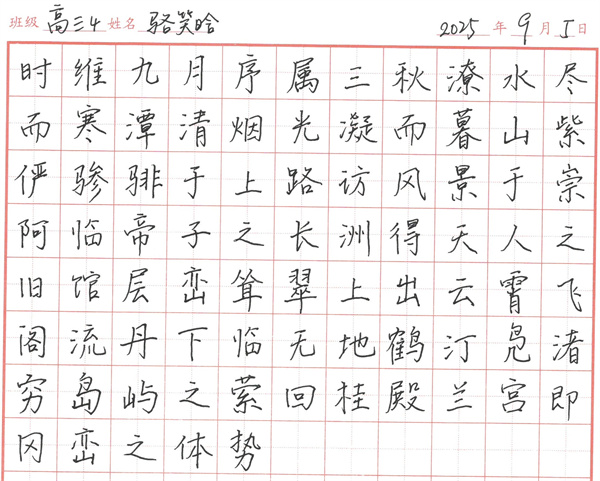 班级 高三4 姓名 骆笑晗 2025 年 9 月 1 日
时维九月序属三秋潦水尽
而寒潭清烟光凝而暮山紫
俨骖騑于上路访风景于崇
阿临帝子之长洲得天人之
旧馆层峦耸翠上出云霄飞
阁流丹下临无地鹤汀凫渚
穷岛屿之萦回桂殿兰宫即
冈峦之体势